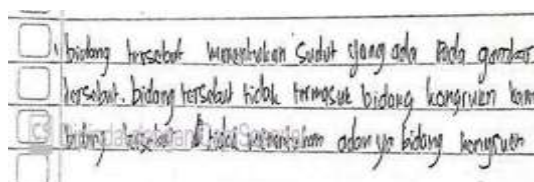 bidang tersebut menentukan sudut yang ada pada gambar
tersebut. bidang tersebut tidak termasuk bidang kongruen
bidang tersebut tidak menentukan adanya bidang kongruen